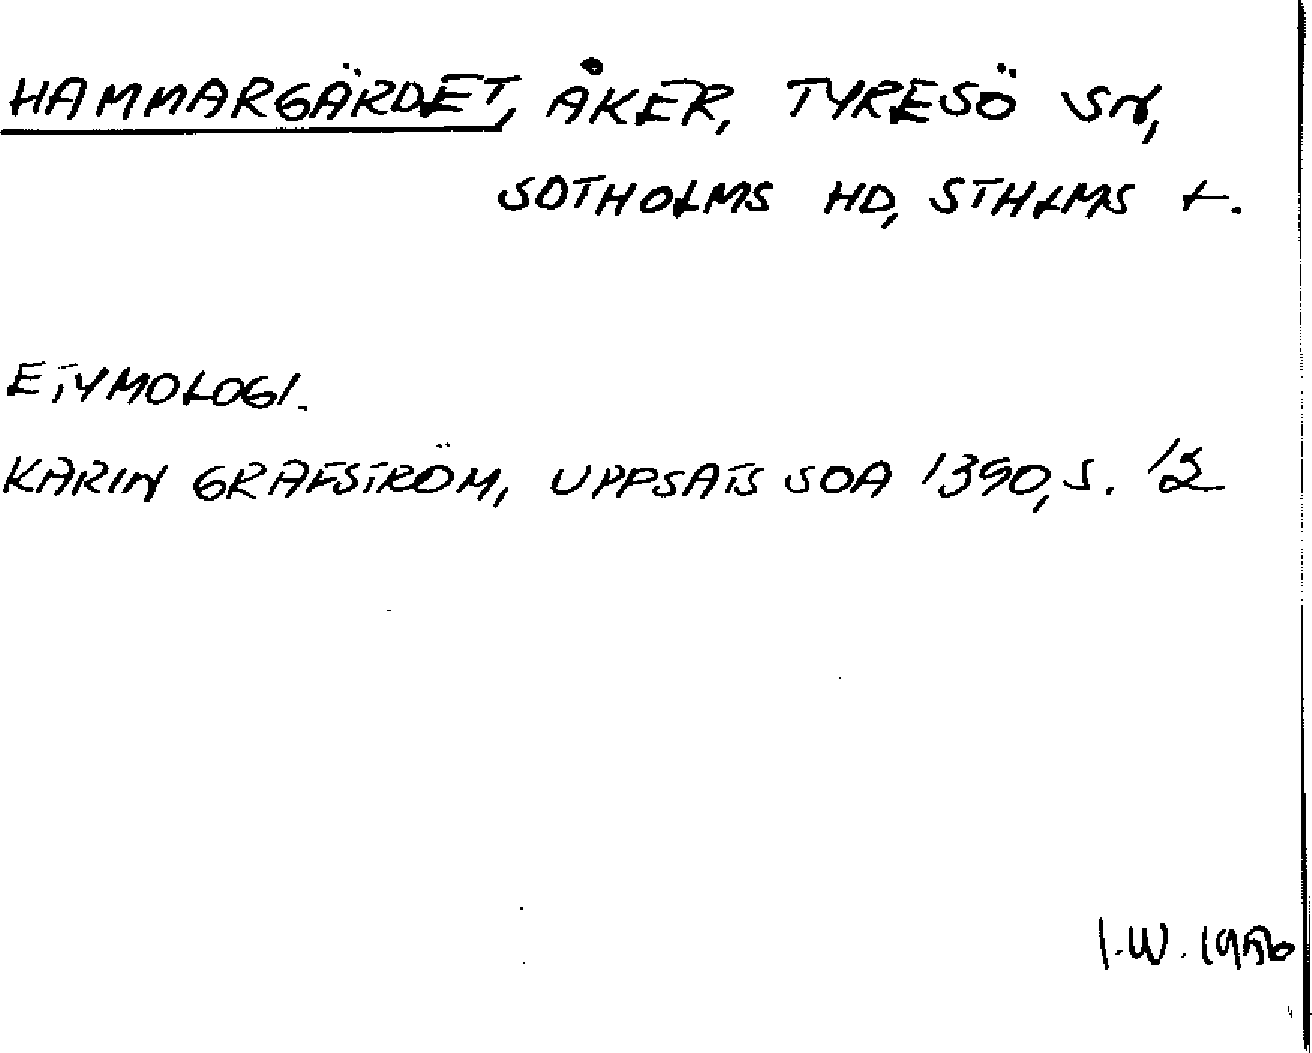 HAMMARGÄRDET, ÅKER, TYRESÖ SN,
SOTHOLMS HD, STHLMS L.
ETYMOLOGI.
KARIN GRAFSTRÖM, UPPSATS SOA 1390, S. 12
I.W. 1956